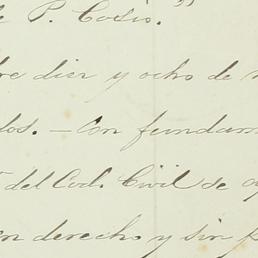 P. Cosío."
diez y ocho de
dos. - Con fundam
del Cod. Civil se
en derecho y sin